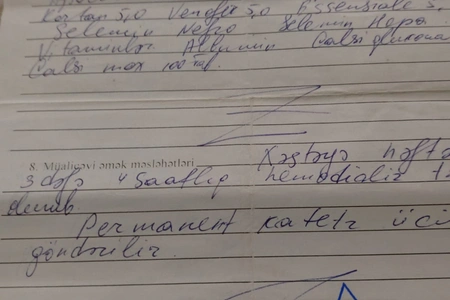 kortan 5,0 Venofer 5,0 Essensiale 5,
Selemin Nefro Selemin Hepa
Vitaminlər Albumin Calsi glukona
Calsi max 100
8. Müalicəvi əmək məsləhətləri Xəstəyə həftə
3 dəfə 4 saatlıq hemodializ t
olunub
Permanent katetr üçü
göndərilir.